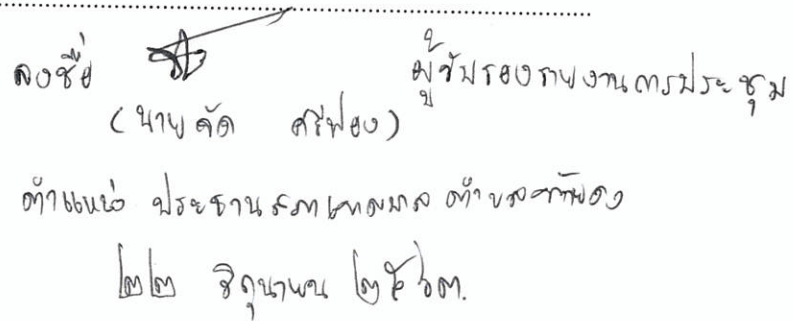 ลงชื่อ ผู้รับรองรายงานการประชุม
(นายคัด ศรีฟอง)
ตำแหน่ง ประธานสภาเทศบาลตำบล
๒๒ มิถุนายน ๒๕๖๓.